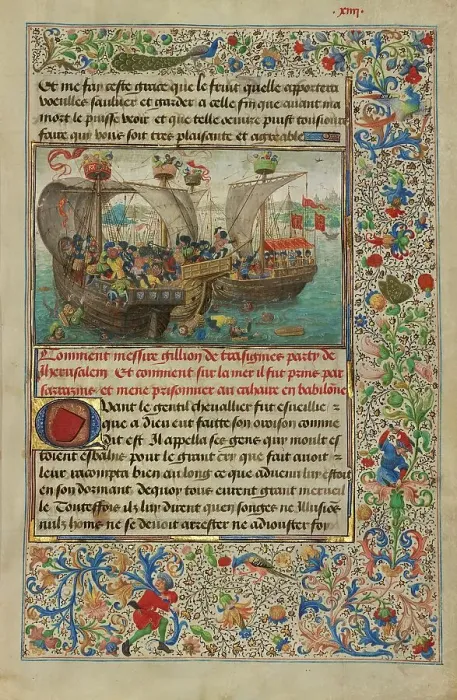 .xiiij.
Et me fay ceste grace que le fruit quelle apportera
voeulles saulver et garder a celle fin que avant ma
mort le puisse veoir et que telle oeuvre puist tousiours
faire qui vous soit tres plaisante et agreable
Comment messire gillion de trasignies party de
Jherusalem Et comment sur la mer il fut prins par
sarrazins et mene prisonnier au cahaire en babilone
Quant le gentil chevallier fut esveillie et
que a dieu eut faitte son oroison comme
dit est Il appella ses gens qui moult es
toient esbahis pour le grant cry que fait avoit et
leur racompta bien au long ce que advenu luy estoit
en son dormant dequoy tous eurent grant merveil
le Touteffois ilz luy dirent que en songes ne illusions
nulz homs ne se devoit arrester ne adiouster foy